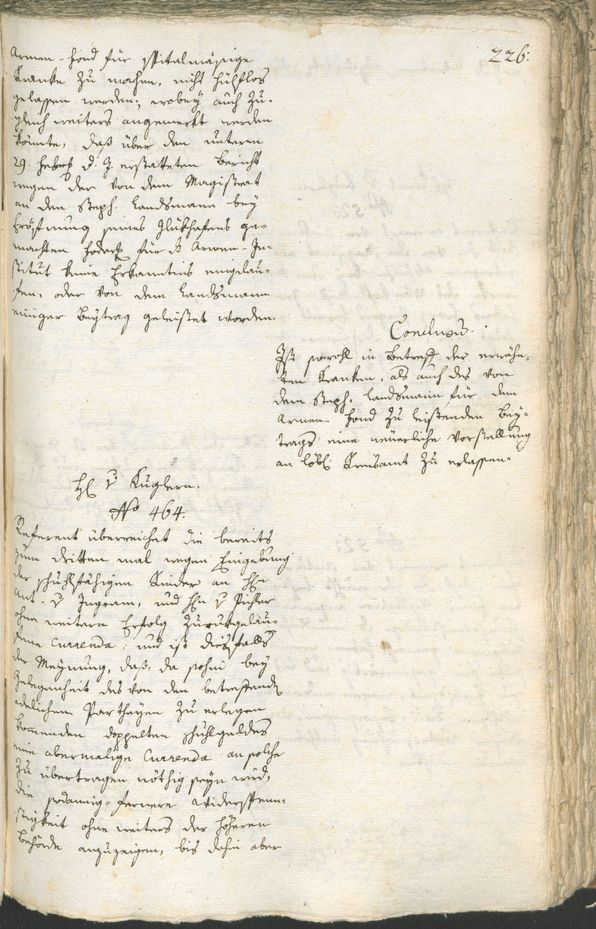 226.
Armen-Fond für spitalmäßige
Kranke zu machen, nicht hülflos
gelassen werden; wobey auch zu-
gleich weiters angemerkt werden
könnte, daß über den unterm
29. d. J. erstatteten Bericht
wegen der von dem Magistrat
an den Steph. Landsmann bey
Eröfnung seines Glükhafens ge-
machten für's Armen-In-
stitut keine Erkanntnis eingelau-
fen, oder von dem Landsmann
einiger Beytrag geleistet worden.
Conclusum.
Ist sowohl in Betreff der erwähn-
ten Kranken, als auch des von
dem Steph. Landsmann für den
Armen-Fond zu leistenden Bey-
trags eine neuerliche Vorstellung
an löbl. Kreisamt zu erlassen.
H. v Kuglern.
No 464.
Referent überreichet die bereits
zum dritten mal wegen Eingebung
der schuhlfähigen Kinder an Hn
Ant. v Ingram, und Hn v
ohne weitern Erfolg zurukgelau-
fene Currenda; und ist diesfalls
der Meynung, daß, da ohne bey
Gelegenheit des von den betreffenden
adelichen Partheyen zu erlegen
kommenden doppelten Schuhlgeldes
eine abermalige Currenda an solche
zu übertragen nöthig seyn wird,
die sodannig-fernere Widerspenn-
stigkeit ohne weiters der höheren
Behörde anzuzeigen, bis dahin aber